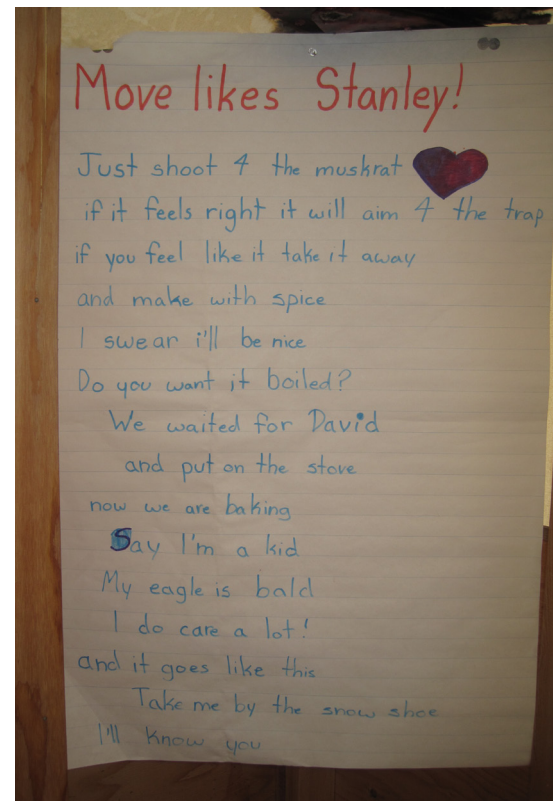 Move likes Stanley!
Just shoot 4 the muskrat
if it feels right it will aim 4 the trap
if you feel like it take it away
and make with spice
I swear i'll be nice
Do you want it boiled?
We waited for David
and put on the stove
now we are baking
Say I'm a kid
My eagle is bald
I do care a lot!
and it goes like this
Take me by the snow shoe
I'll know you